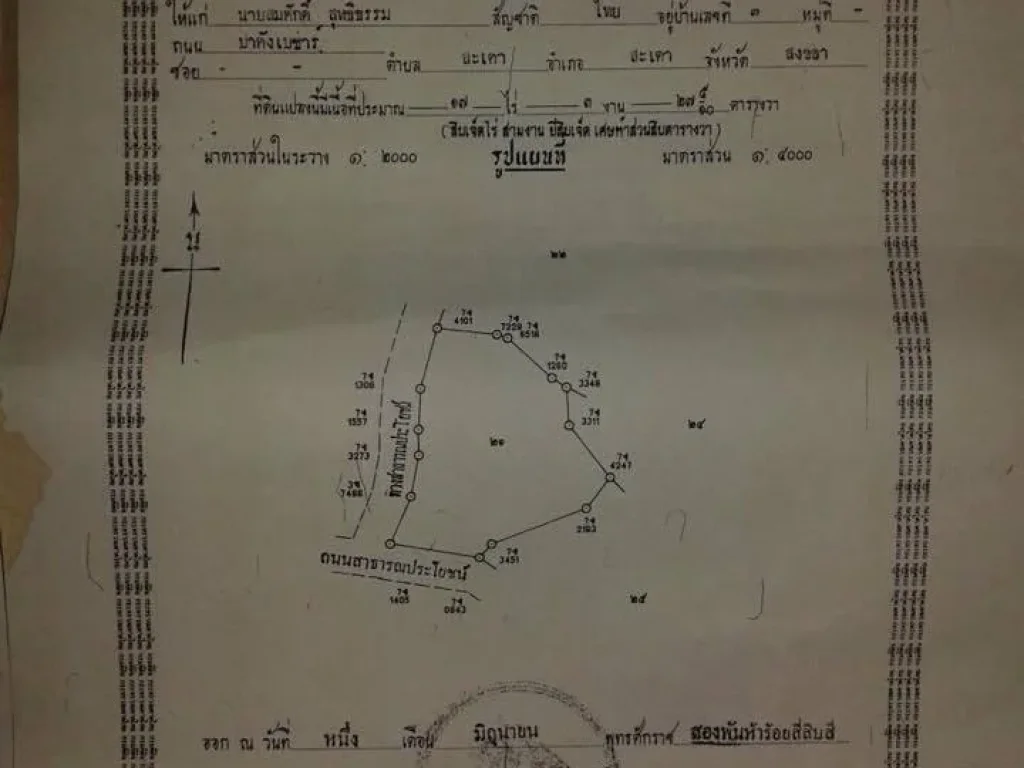 ให้แก่ นายสมศักดิ์ สุทธิธรรม สัญชาติ ไทย อยู่บ้านเลขที่ ๓ หมู่ที่ -
ถนน ปาดังเบซาร์
ซอย - - ตำบล สะเดา อำเภอ สะเดา จังหวัด สงขลา
ที่ดินแปลงนี้มีเนื้อที่ประมาณ ๑๗ ไร่ ๓ งาน ๒๗ ๕/๑๐ ตารางวา
(สิบเจ็ดไร่ สามงาน ยี่สิบเจ็ด เศษห้าส่วนสิบตารางวา)
มาตราส่วนในระวาง ๑: ๒๐๐๐ รูปแผนที่ มาตราส่วน ๑: ๔๐๐๐
น
๒๒
7ฯ 4101
7ฯ 7229
7ฯ 6518
7ฯ 1260
7ฯ 3348
7ฯ 1306
7ฯ 1557
7ฯ 3311
7ฯ 3273
ทางสาธารณประโยชน์
๒๑
๒๔
7ฯ 4247
7ฯ 2193
7ฯ 3451
ถนนสาธารณประโยชน์
7ฯ 1405
7ฯ 0843
๒๕
ออก ณ วันที่ หนึ่ง เดือน มิถุนายน พุทธศักราช สองพันห้าร้อยสี่สิบสี่